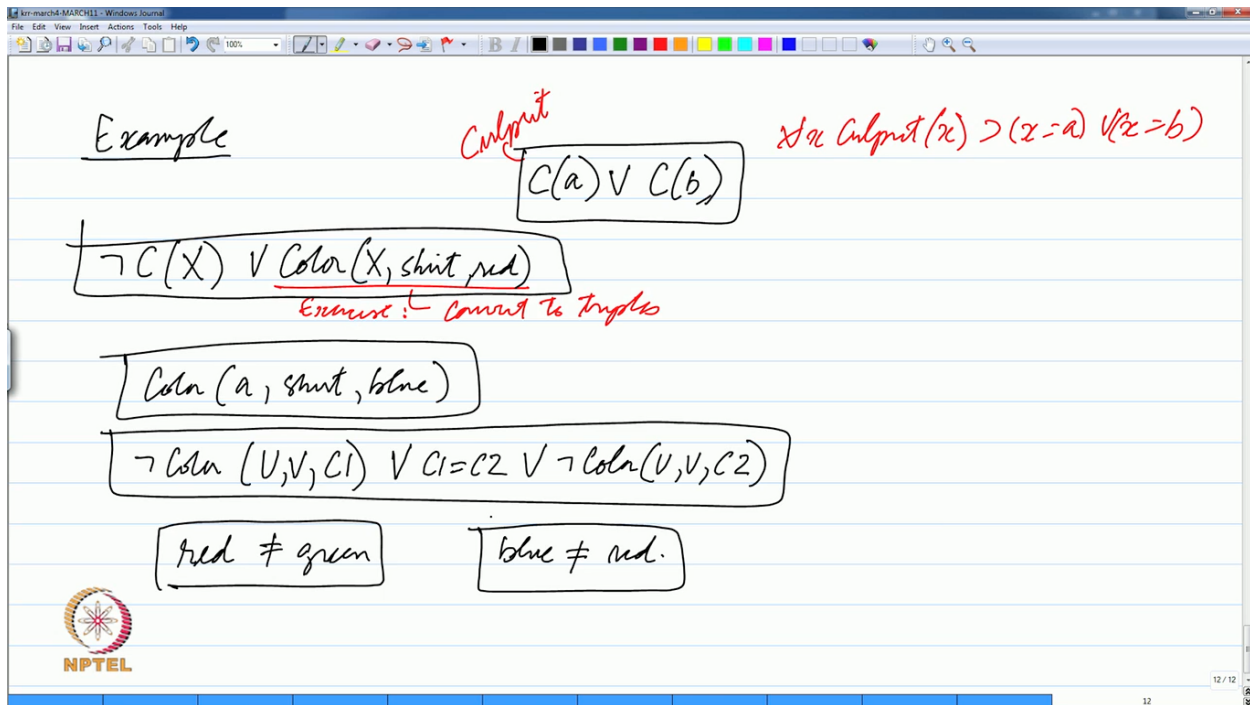 krr-march4-MARCH11 - Windows Journal
File Edit View Insert Actions Tools Help
100% B I
Example
Culprit
∀x Culprit(x) ⊃ (x=a) ∨ (x=b)
C(a) ∨ C(b)
¬C(X) ∨ Color(X, shirt, red)
Exercise :- Convert to triples
Color(a, shirt, blue)
¬Color(U,V,C1) ∨ C1=C2 ∨ ¬Color(U,V,C2)
red ≠ green blue ≠ red.
NPTEL
12 / 12
12